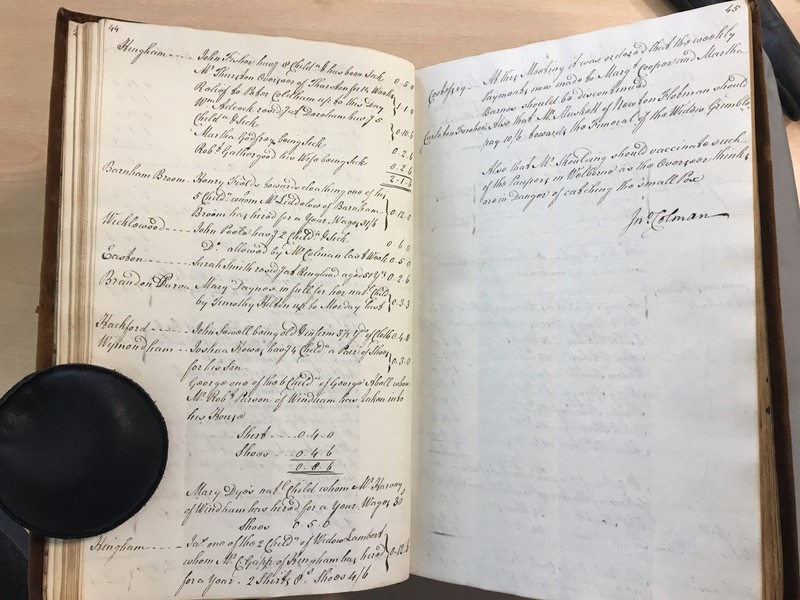 44
Hingham John Fisher hav.g 8 Child.n & has been Sick 0-5-0
M.r Thurston Overseer of Thurston for 14 Weeks
Relief to Peter Coltham up to this Day 1-1-0
W.m Adcock resid.g at Dereham hav.g 5
Child.n & Sick 0-10-6
Martha Godfrey being Sick 0-2-6
Rob.t Gathergood his Wife being Sick 0-2-6
2-1-6
Barnham Broom Henry Fields towards cloathing one of his
5 Child.n whom M.r Liddelow of Barnham
Broom has hired for a Year Wages 31/6 0-12-0
Wicklewood John Poole hav.g 2 Child.n & Sick 0-6-0
D.o allowed by M.r Colman last Week 0-5-0
Easton Sarah Smith resid.g at Ringland aged 51 Y.rs 0-2-6
Brandon Parva Mary Daynes in full for her nat.l Child
by Timothy Hilton up to Monday last 0-3-3
Hackford John Sewell being old & infirm 3½ Y.ds of Cloth 0-4-8
Wymondham Joshua Howes hav.g 4 Child.n a Pair of Shoes
for his Son 0-3-0
George one of the 6 Child.n of George Abell whom
M.r Rob.t Parson of Windham has taken into
his House
Shirt 0-4-0
Shoes 0-4-6
0-8-6
Mary Dye's nat.l Child whom M.r Harvey
of Windham has hired for a Year Wages 30.s
Shoes 0-5-0
Hingham Ja.s one of the 2 Child.n of Widow Lambert
whom M.r C. Gapp of Hingham has hired
for a Year. 2 Shirts 8.s Shoes 4/6 0-12-6
45
Costessey At this Meeting it was ordered that the weekly
Payments now made to Marg.t Cooper and Martha
Barnes should be discontinued
Carleton Forehoe Also that M.r Muskett of Newton Flotman should
pay 10/6 towards the Funeral of the Widow Grimble
Also that M.r Shoulding should vaccinate such
of the Paupers in Welborne as the Overseer thinks
are in danger of catching the Small Pox
Jn.o Colman